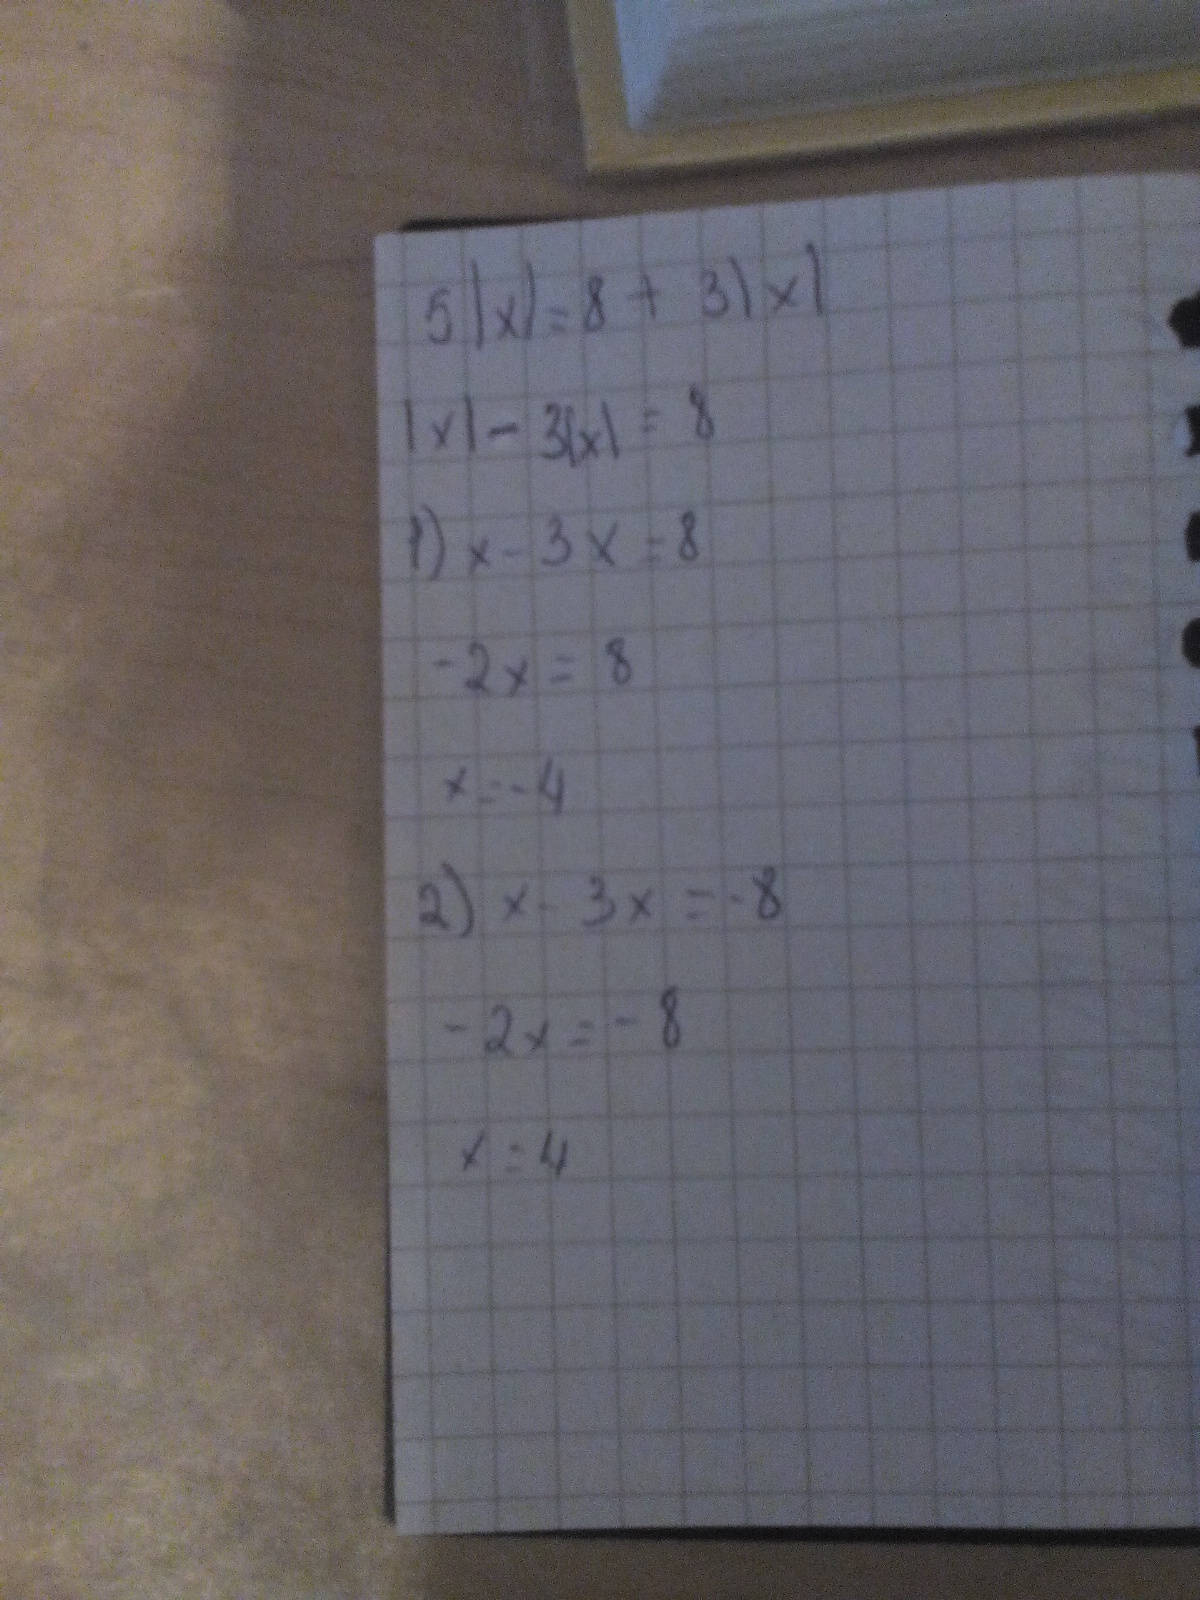 5|x|=8+3|x|
|x|-3|x|=8
1) x-3x=8
-2x=8
x=-4
2) x-3x=-8
-2x=-8
x=4